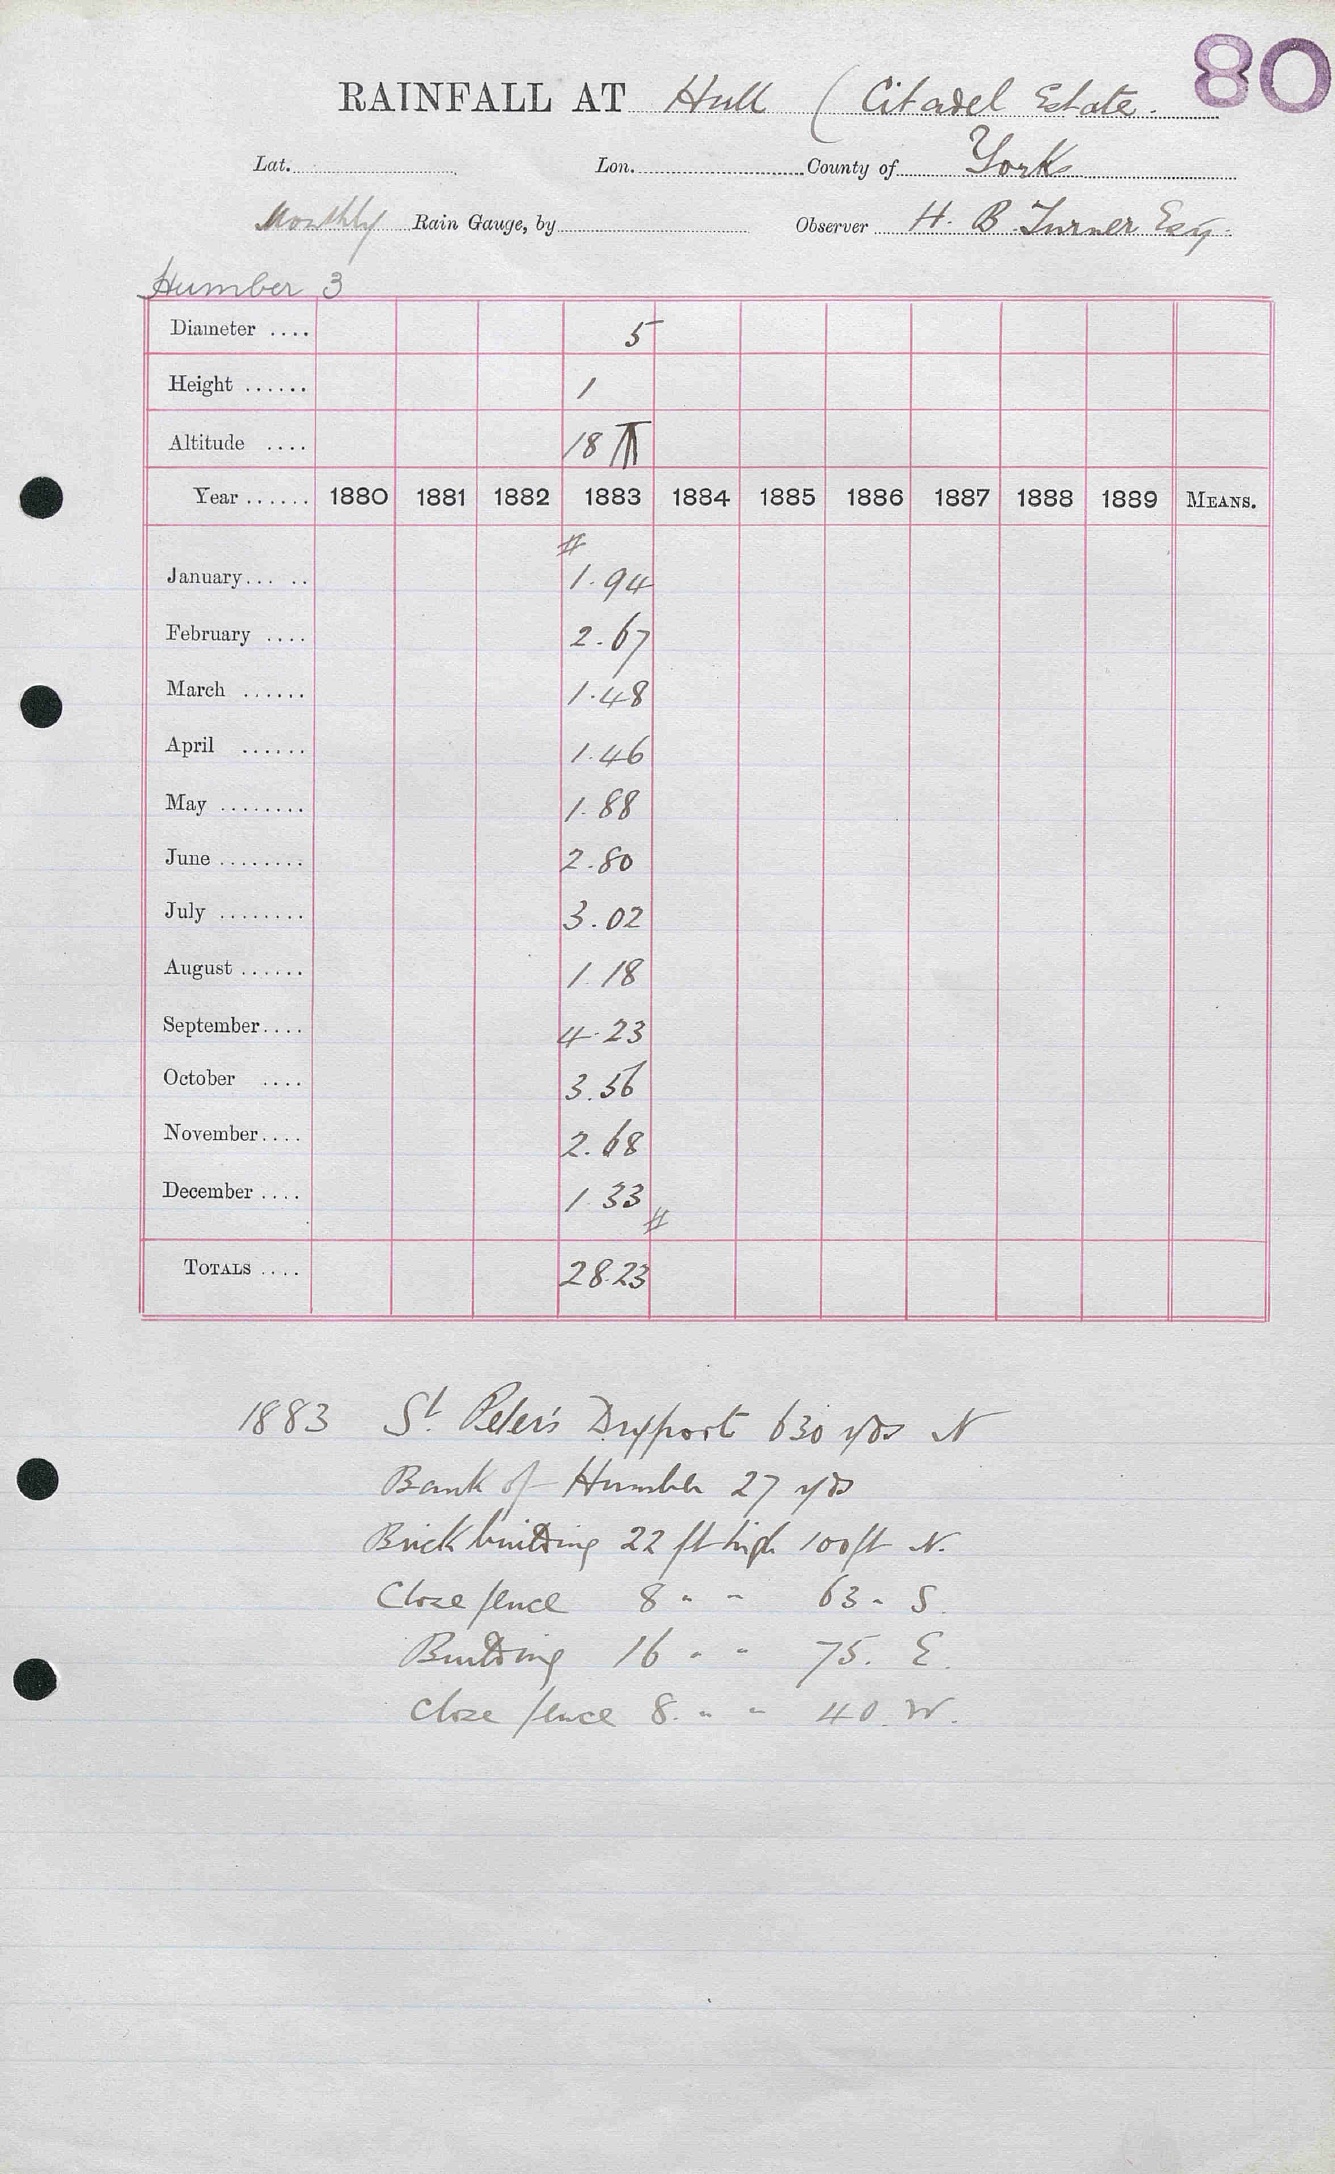 80
RAINFALL AT Hull (Citadel Estate.
Lat. Lon. County of Yorks
Monthly Rain Gauge, by Observer H. B. Turner Esq.
Humber 3
Diameter .... 5
Height ...... 1
Altitude .... 18
Year ...... 1880 1881 1882 1883 1884 1885 1886 1887 1888 1889 MEANS.
#
January... .. 1.94
February .... 2.67
March ...... 1.48
April ...... 1.46
May ........ 1.88
June ........ 2.80
July ........ 3.02
August ...... 1.18
September.... 4.23
October .... 3.56
November.... 2.68
December .... 1.33
#
TOTALS .... 28.23
1883 St. Peter's Drypool 630 yds N
Bank of Humber 27 yds
Brick building 22 ft high 100ft N.
Close fence 8 " " 63 " S.
Building 16 " " 75. E.
Close fence 8. " " 40. W.